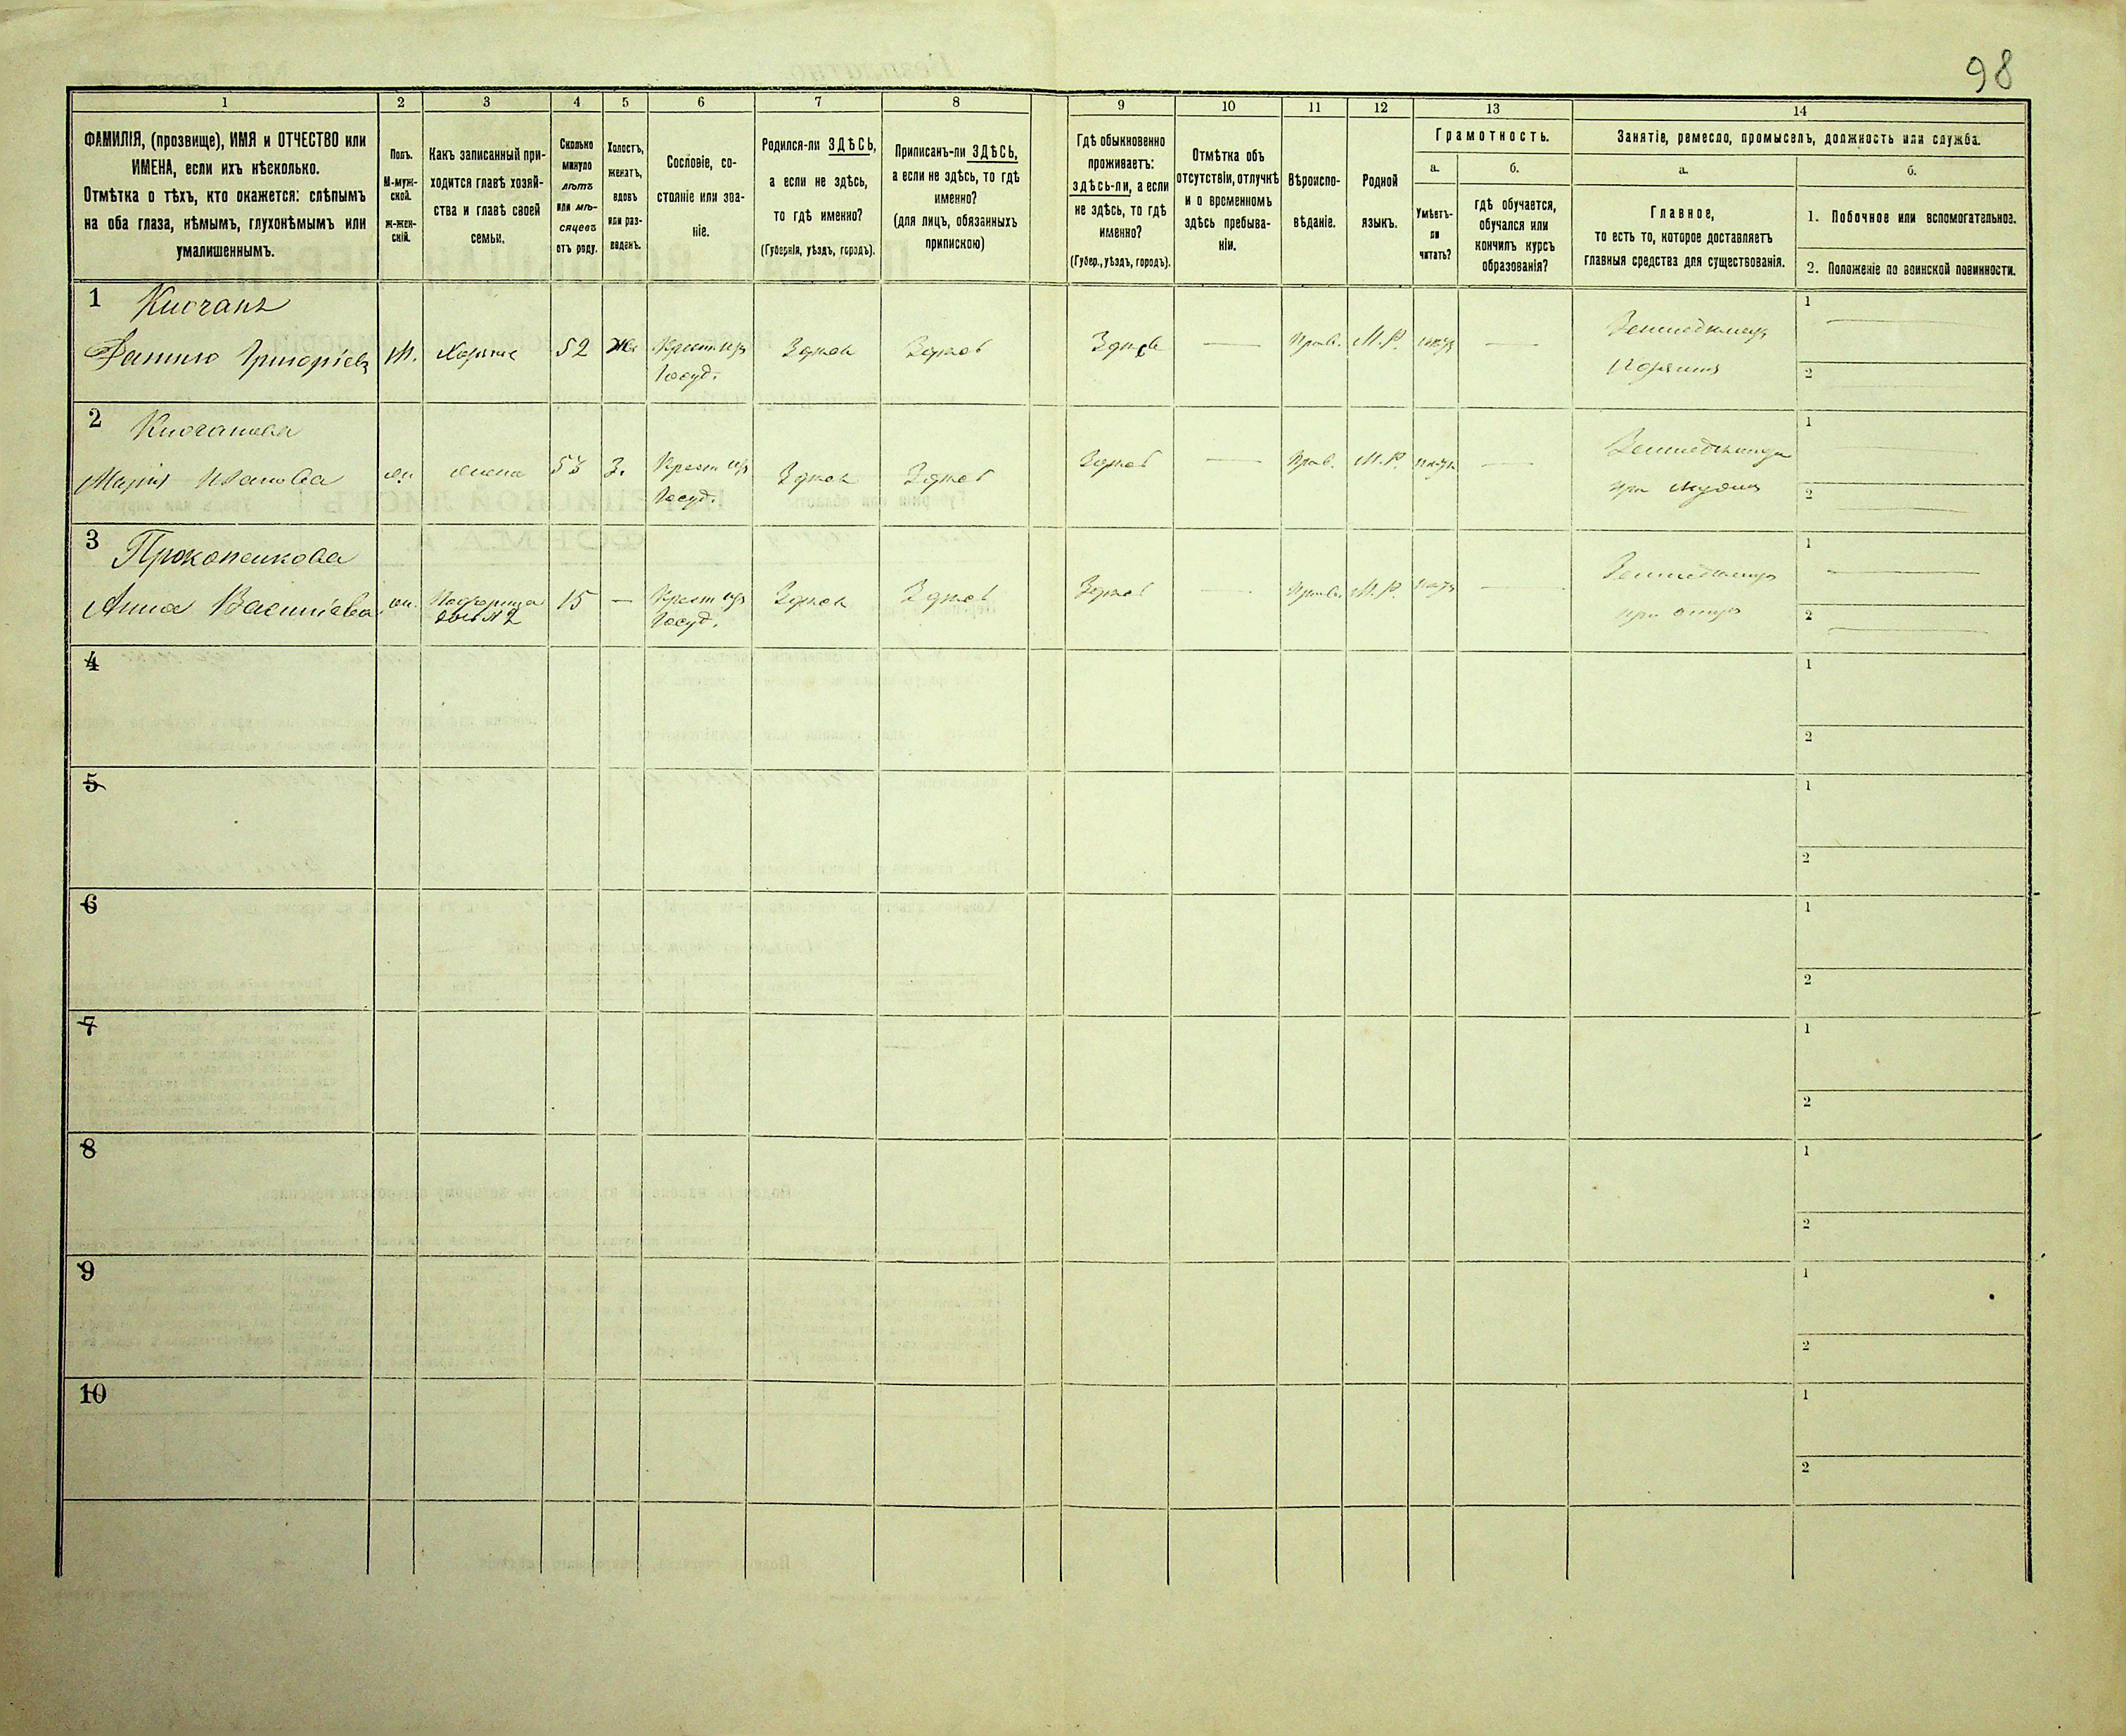 98
1 2 3 4 5 6 7 8 9 10 11 12 13 14
ФАМИЛІЯ, (прозвище), ИМЯ и ОТЧЕСТВО или
ИМЕНА, если ихъ нѣсколько.
Отмѣтка о тѣхъ, кто окажется: слѣпымъ
на оба глаза, нѣмымъ, глухонѣмымъ или
умалишеннымъ.
Полъ.
М-муж-
ской.
ж-жен-
скій.
Какъ записанный при-
ходится главѣ хозяй-
ства и главѣ своей
семьи.
Сколько
минуло
лѣтъ
или мѣ-
сяцевъ
отъ роду.
Холостъ,
женатъ,
вдовъ
или раз-
веденъ.
Сословіе, со-
стояніе или зва-
ніе.
Родился-ли ЗДѢСЬ,
а если не здѣсь,
то гдѣ именно?
(Губернія, уѣздъ, городъ).
Приписанъ-ли ЗДѢСЬ,
а если не здѣсь, то гдѣ
именно?
(для лицъ, обязанныхъ
припискою)
Гдѣ обыкновенно
проживаетъ:
здѣсь-ли, а если
не здѣсь, то гдѣ
именно?
(Губер., уѣздъ, городъ).
Отмѣтка объ
отсутствіи, отлучкѣ
и о временномъ
здѣсь пребыва-
ніи.
Вѣроиспо-
вѣданіе.
Родной
языкъ.
Грамотность.
а.
Умѣетъ-
ли
читать?
б.
гдѣ обучается,
обучался или
кончилъ курсъ
образованія?
Занятіе, ремесло, промыселъ, должность или служба.
а.
Главное,
то есть то, которое доставляетъ
главныя средства для существованія.
б.
1. Побочное или вспомогательное.
2. Положеніе по воинской повинности.
1
М. 52 Крест. изъ Здѣсь Здѣсь Здѣсь — Прав. М.Р. нѣтъ —
Госуд.
1 —
2 —
2
Марія Иванова ж. жена 53 З. Крест. изъ Здѣсь Здѣсь Здѣсь — Прав. М.Р. нѣтъ —
Госуд.
1 —
2 —
3 Прокопенкова
Анна Васильева ж. 15 — Крест. изъ Здѣсь Здѣсь Здѣсь — Прав. М.Р. нѣтъ —
Госуд.
1 —
2 —
4 1
2
5 1
2
6 1
2
7 1
2
8 1
2
9 1
2
10 1
2